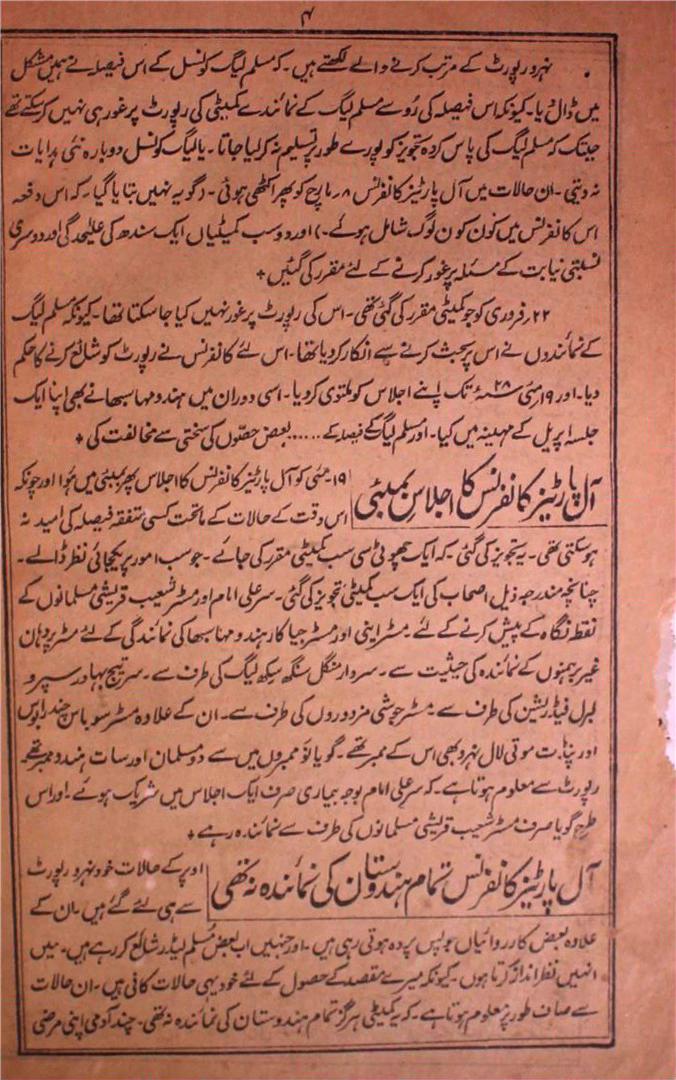 ۴
نہرو رپورٹ کے مرتب کرنے والے لکھتے ہیں۔ کہ مسلم لیگ کونسل کے اس فیصلہ نے ہمیں مشکل
میں ڈال دیا۔ کیونکہ اس فیصلہ کی رُو سے مسلم لیگ کے نمائندے کمیٹی کی رپورٹ پر غور ہی نہیں کر سکتے تھے
جبتک کہ مسلم لیگ کی پاس کردہ تجویز کو پورے طور پر تسلیم نہ کر لیا جاتا۔ یا لیگ کونسل دوبارہ نئی ہدایات
نہ دیتی۔ ان حالات میں آل پارٹیز کانفرنس ۸؍مارچ کو پھر اکٹھی ہوئی۔ (گو یہ نہیں بتایا گیا۔ کہ اس دفعہ
اس کانفرنس میں کون کون لوگ شامل ہوئے۔) اور دو سب کمیٹیاں ایک سندھ کی علیٰحدگی اور دوسری
نسبتی نیابت کے مسئلہ پر غور کرنے کے لئے مقرر کی گئیں ٭
۲۲؍فروری کو جو کمیٹی مقرر کی گئی تھی۔ اس کی رپورٹ پر غور نہیں کیا جا سکتا تھا۔ کیونکہ مسلم لیگ
کے نمائندوں نے اس پر بحث کرنے سے انکار کر دیا تھا۔ اس لئے کانفرنس نے رپورٹ کو شائع کرنے کا حکم
دیا۔ اور ۱۹؍مئی ۲۸ء تک اپنے اجلاس کو ملتوی کر دیا۔ اسی دوران میں ہندو مہاسبھا نے بھی اپنا ایک
جلسہ اپریل کے مہینہ میں کیا۔ اور مسلم لیگ کے فیصلہ کے ...... بعض حصّوں کی سختی سے مخالفت کی ٭
آل پارٹیز کانفرنس کا اجلاس بمبئی
۱۹۔مئی کو آل پارٹیز کانفرنس کا اجلاس پھر بمبئی میں ہُوا اور چونکہ
اس وقت کے حالات کے ماتحت کسی متفقہ فیصلہ کی امید نہ
ہو سکتی تھی۔ یہ تجویز کی گئی۔ کہ ایک چھوٹی سی سب کمیٹی مقرر کی جائے۔ جو سب امور پر یکجائی نظر ڈالے۔
چنانچہ مندرجہ ذیل اصحاب کی ایک سب کمیٹی تجویز کی گئی۔ سر علی امام اور مسٹر شعیب قریشی مسلمانوں کے
نقطہ نگاہ کے پیش کرنے کے لئے مسٹر اینی اور مسٹر جیاکار ہندو مہاسبھا کی نمائندگی کے لئے مسٹر پردہان
غیر برہمنوں کے نمائندہ کی حیثیت سے۔ سردار منگل سنگھ سکھ لیگ کی طرف سے۔ سر تیج بہادر سپرو
لبرل فیڈریشن کی طرف سے۔ مسٹر جوشی مزدوروں کی طرف سے۔ ان کے علاوہ مسٹر سوباس چندر ابوس
اور پنڈت موتی لال نہرو بھی اس کے ممبر تھے۔ گویا نَو ممبروں میں سے دو مسلمان اور سات ہندو ممبر تھے
رپورٹ سے معلوم ہوتا ہے۔ کہ سر علی امام بوجہ بیماری صرف ایک اجلاس میں شریک ہوئے۔ اور اس
طرح گویا صرف مسٹر شعیب قریشی مسلمانوں کی طرف سے نمائندہ رہے ٭
آل پارٹیز کانفرنس تمام ہندوستان کی نمائندہ نہ تھی
اوپر کے حالات خود نہرو رپورٹ
سے ہی لئے گئے ہیں۔ ان کے
علاوہ بعض کارروائیاں جو پس پردہ ہوتی رہی ہیں۔ اور جنہیں اب بعض مُسلم لیڈر شائع کر رہے ہیں۔ میں
انہیں نظر انداز کرتا ہوں۔ کیونکہ میرے مقصد کے حصول کے لئے خود یہی حالات کافی ہیں۔ ان حالات
سے صاف طور پر معلوم ہوتا ہے۔ کہ یہ کمیٹی ہرگز تمام ہندوستان کی نمائندہ نہ تھی۔ چند آدمی اپنی مرضی